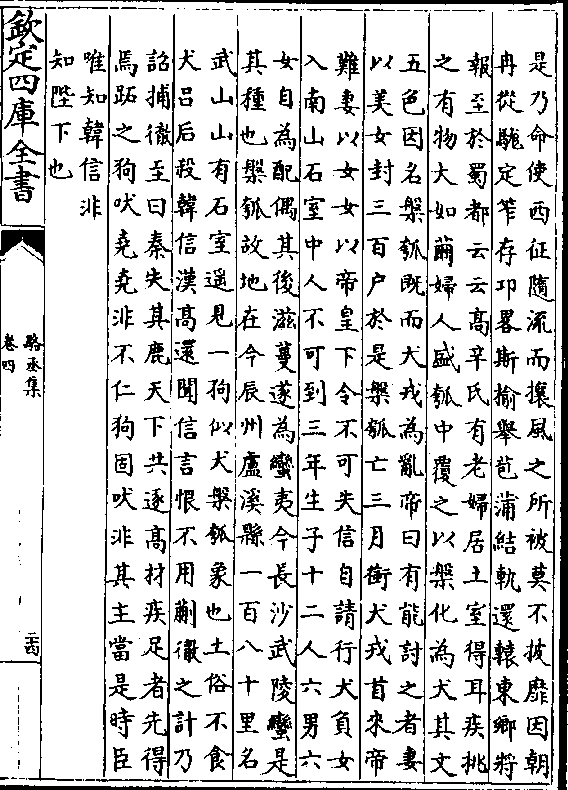 是乃命使西征隨流而攘風之所被莫不披靡因朝
冉從駹定筰存邛畧斯揄舉苞蒲結軌還轅東鄉將
報至於蜀都云云高辛氏有老婦居土室得耳疾挑
之有物大如繭婦人盛瓠中覆之以槃化為犬其文
五色因名槃瓠既而犬戎為亂帝曰有能討之者妻
以美女封三百户於是槃瓠亡三月銜犬戎首來帝
難妻以女女以帝皇下令不可失信自請行犬負女
入南山石室中人不可到三年生子十二人六男六
女自為配偶其後滋蔓遂為蠻夷今長沙武陵蠻是
其種也槃瓠故地在今辰州盧溪縣一百八十里名
武山山有石室遥見一狗似犬槃瓠象也土俗不食
犬吕后殺韓信漢高還聞信言恨不用蒯徹之計乃
詔捕徹至曰秦失其鹿天下共逐高材疾足者先得
焉跖之狗吠堯堯非不仁狗固吠非其主當是時臣
唯知韓信非
知陛下也
欽定四庫全書
駱丞集
卷四
二十四